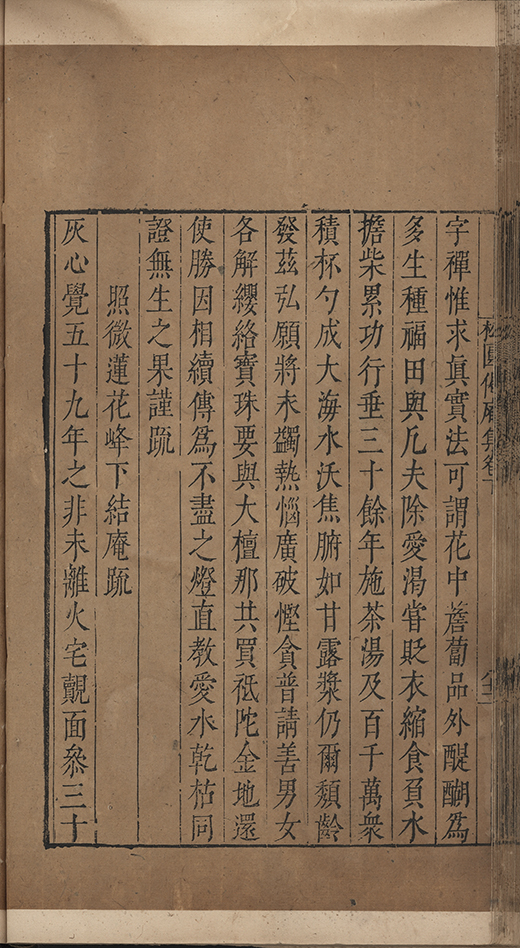 字禪惟求眞實法可謂花中薝蔔品外醍醐爲
多生種福田與凡夫除愛渴甞貶衣縮食負水
擔柴累功行垂三十餘年施茶湯及百千萬衆
積杯勺成大海水沃焦腑如甘露漿仍爾頹齡
發茲弘願將未蠲熱惱廣破慳貪普請善男女
各解纓絡寶珠要與大檀那共買祗陀金地還
使勝因相續傳爲不盡之燈直教愛水乾枯同
證無生之果謹䟽
照微蓮花峰下結庵䟽
灰心覺五十九年之非未離火宅覿面叅三十